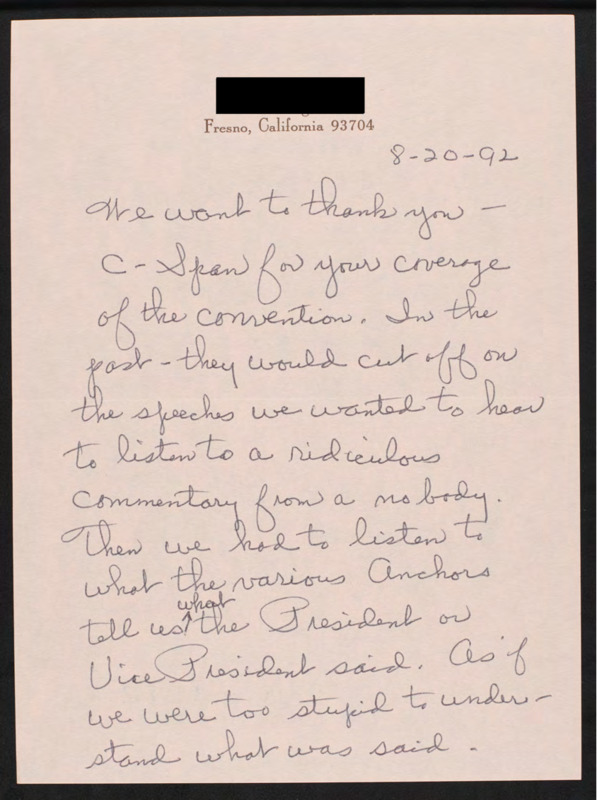 Fresno, California 93704
8-20-92
We want to thank you —
C-Span for your coverage
of the convention. In the
past - they would cut off on
the speeches we wanted to hear
to listen to a ridiculous
commentary from a nobody.
Then we had to listen to
what the various Anchors
what
tell us ↑ the President or
Vice President said. As if
we were too stupid to under-
stand what was said.